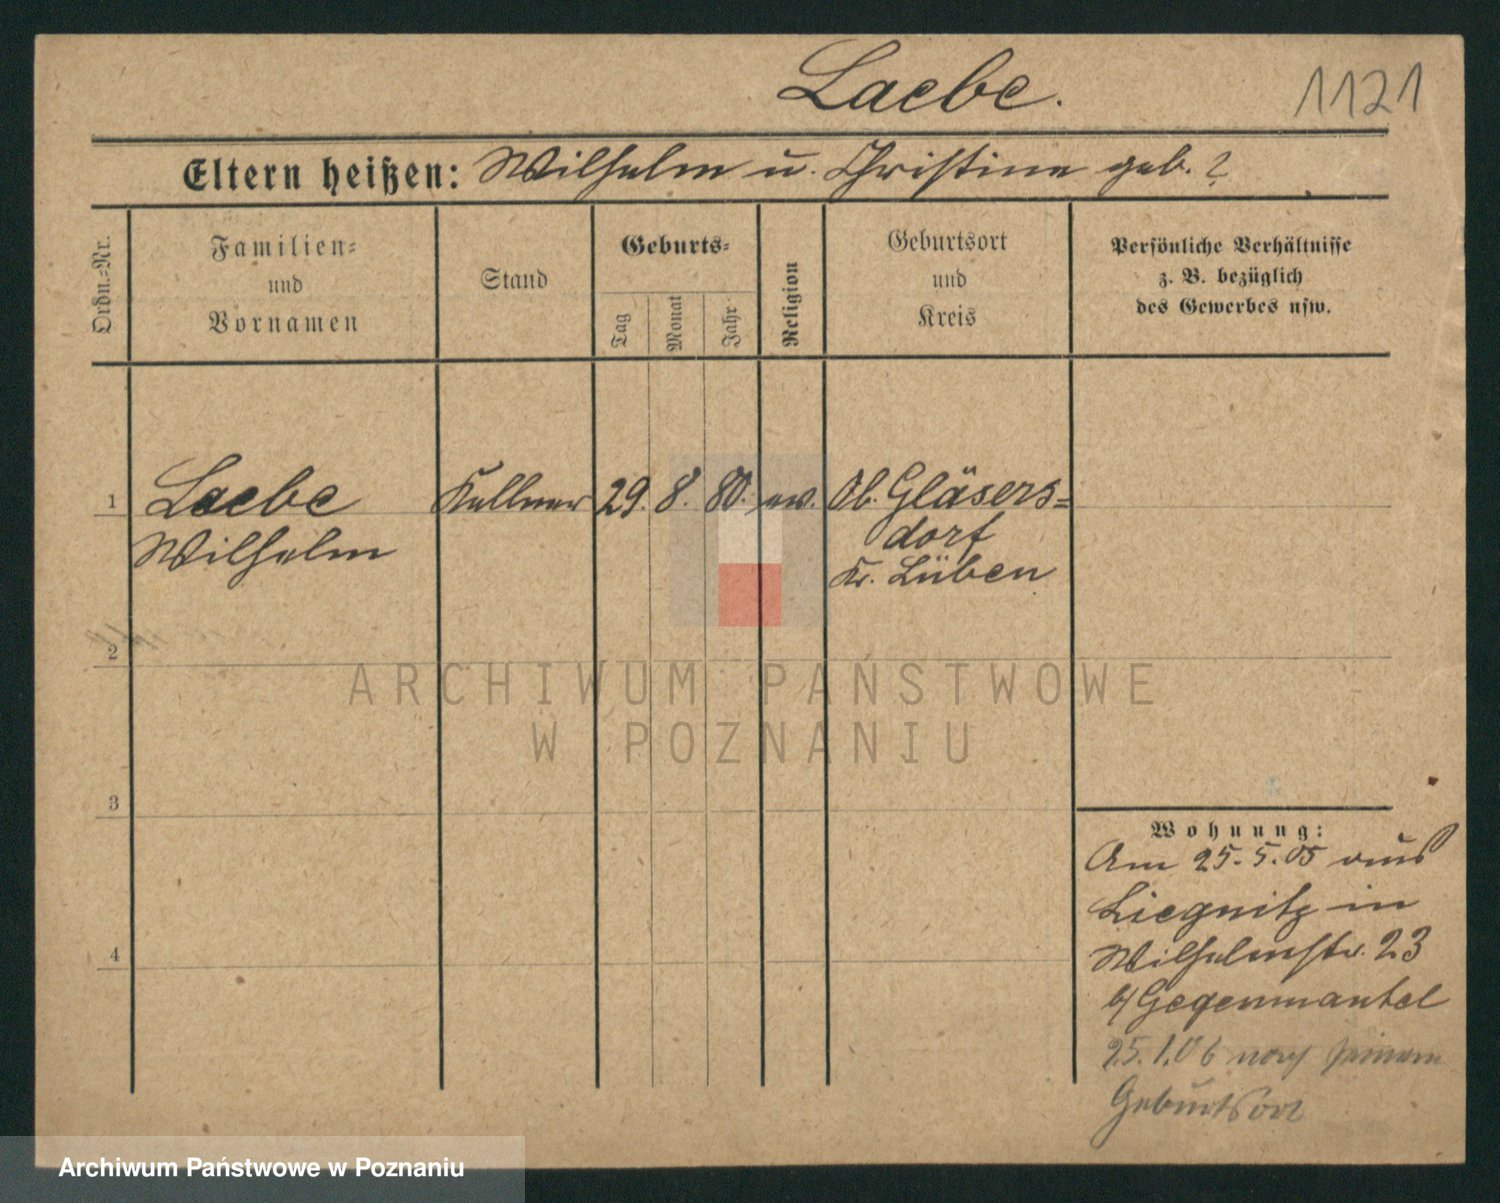 Laebe.
1121
Eltern heißen: Wilhelm u. Christine geb. ?
Ordn.=Nr.
Familien=
und
Vornamen
Stand
Geburts=
Tag
Monat
Jahr
Religion
Geburtsort
und
Kreis
Persönliche Verhältnisse
z. B. bezüglich
des Gewerbes usw.
1
Laebe
Wilhelm
Kellner
29. 8. 80.
ev.
Ob. Gläsers=
dorf
Kr. Lüben
2
3
4
Wohnung:
Am 25.5.05 aus
Liegnitz in
Wilhelmstr. 23
b/ Gegenmantel
25.1.06 nach seinem
Geburtsort
ARCHIWUM PAŃSTWOWE
W POZNANIU
Archiwum Państwowe w Poznaniu